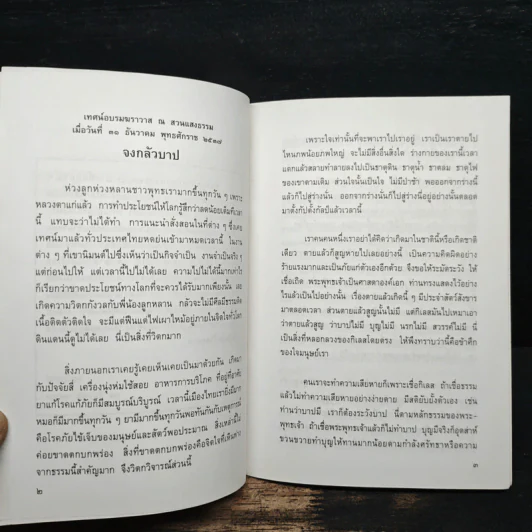 เทศน์อบรมฆราวาส ณ สวนแสงธรรม
เมื่อวันที่ ๓๐ ธันวาคม พุทธศักราช ๒๕๓๗
จงกลัวบาป
ห่วงลูกห่วงหลานชาวพุทธเรามากขึ้นทุกวัน ๆ เพราะ
หลวงตาแก่แล้ว การทำประโยชน์ให้โลกรู้สึกว่าลดน้อยเต็มทีเวลา
นี้ แทบจะว่าไม่ได้ทำ การแนะนำสั่งสอนในที่ต่าง ๆ ซึ่งเคย
เทศน์มาแล้วทั่วประเทศไทยหดย่นเข้ามาหมดเวลานี้ ในงาน
ต่าง ๆ ที่เขานิมนต์ไปซึ่งเห็นว่าเป็นกิจจำเป็น งานจำเป็นจริง ๆ
แต่ก่อนไปให้ แต่เวลานี้ไปไม่ได้เลย ความไปไม่ได้นี้มากเท่าไร
ก็เรียกว่าขาดประโยชน์ทางโลกที่จะควรได้รับมากเพียงนั้น และ
เกิดความวิตกกังวลกับพี่น้องลูกหลาน กลัวจะไม่มีศีลมีธรรมติด
เนื้อติดตัวติดใจ จะมีแต่ฟืนแต่ไฟเผาไหม้อยู่ภายในจิตใจทั่วโลก
ดินแดนนี้ดูไม่ได้เลย นี่เป็นสิ่งที่วิตกมาก
สิ่งภายนอกเราเคยรู้เคยเห็นเคยเป็นมาด้วยกัน เกิดมา
กับปัจจัยสี่ เครื่องนุ่งห่มใช้สอย อาหารการบริโภค ที่อยู่ที่อาศัย
ยาแก้โรคแก้ภัยก็มีสมบูรณ์บริบูรณ์ เวลานี้เมืองไทยเรายิ่งมีมาก
หมอก็มีมากขึ้นทุกวัน ๆ ยามีมากขึ้นทุกวันพอทันกันกับเหตุการณ์
คือโรคภัยไข้เจ็บของมนุษย์และสัตว์พอประมาณ สิ่งเหล่านี้ไม่
ค่อยขาดตกบกพร่อง สิ่งที่ขาดตกบกพร่องคือจิตใจที่เหินห่าง
จากธรรมนี้สำคัญมาก จึงวิตกวิจารณ์ส่วนนี้
๒
เพราะใจเท่านั้นที่จะพาเราไปเราอยู่ เราเป็นเราตายไป
ไหนภพน้อยภพใหญ่ จะไม่มีสิ่งอื่นสิ่งใด ร่างกายของเรานี้เวลา
แตกแล้วสลายทำลายลงไปเป็นธาตุดิน ธาตุน้ำ ธาตุลม ธาตุไฟ
ของเขาตามเดิม ส่วนใจนั้นเป็นใจ ไม่มีป่าช้า พอออกจากร่างนี้
แล้วก็ไปสู่ร่างนั้น ออกจากร่างนั้นก็ไปสู่ร่างนี้อยู่อย่างนั้นตลอด
มาตั้งกัปตั้งกัลป์แล้วเวลานี้
เราคนคนหนึ่งเราอย่าได้คิดว่าเกิดมาในชาตินี้หรือเกิดชาติ
เดียว ตายแล้วก็สูญหายไปเลยอย่างนี้ เป็นความคิดผิดอย่าง
ร้ายแรงมากและเป็นภัยแก่ตัวเองอีกด้วย จึงขอให้ระมัดระวัง ให้
เชื่อเถิด พระพุทธเจ้าเป็นศาสดาองค์เอก ท่านทรงแสดงไว้อย่าง
ไรแล้วเป็นไปอย่างนั้น เรื่องตายแล้วเกิดนี้ ๆ มีประจำสัตว์สังขาร
มาตลอดเวลา ส่วนตายแล้วสูญนั้นไม่มี แต่กิเลสมันไปเหมาเอา
ว่าตายแล้วสูญ ว่าบาปไม่มี บุญไม่มี นรกไม่มี สวรรค์ไม่มี นี่
เป็นสิ่งที่หลอกลวงของกิเลสโดยตรง ให้พึงทราบว่านี้คือข้าศึก
ของใจมนุษย์เรา
คนเราจะทำความเสียหายก็เพราะเชื่อกิเลส ถ้าเชื่อธรรม
แล้วไม่ทำความเสียหายอย่างง่ายดาย มีสติยับยั้งตัวเอง เช่น
ท่านว่าบาปมี เราก็ต้องระวังบาป นี่ตามหลักธรรมของพระ-
พุทธเจ้า ถ้าเชื่อพระพุทธเจ้าแล้วก็ไม่ทำบาป บุญมีจริงก็อุตส่าห์
ขวนขวายทำบุญให้ทานมากน้อยตามกำลังศรัทธาหรือความ
๓